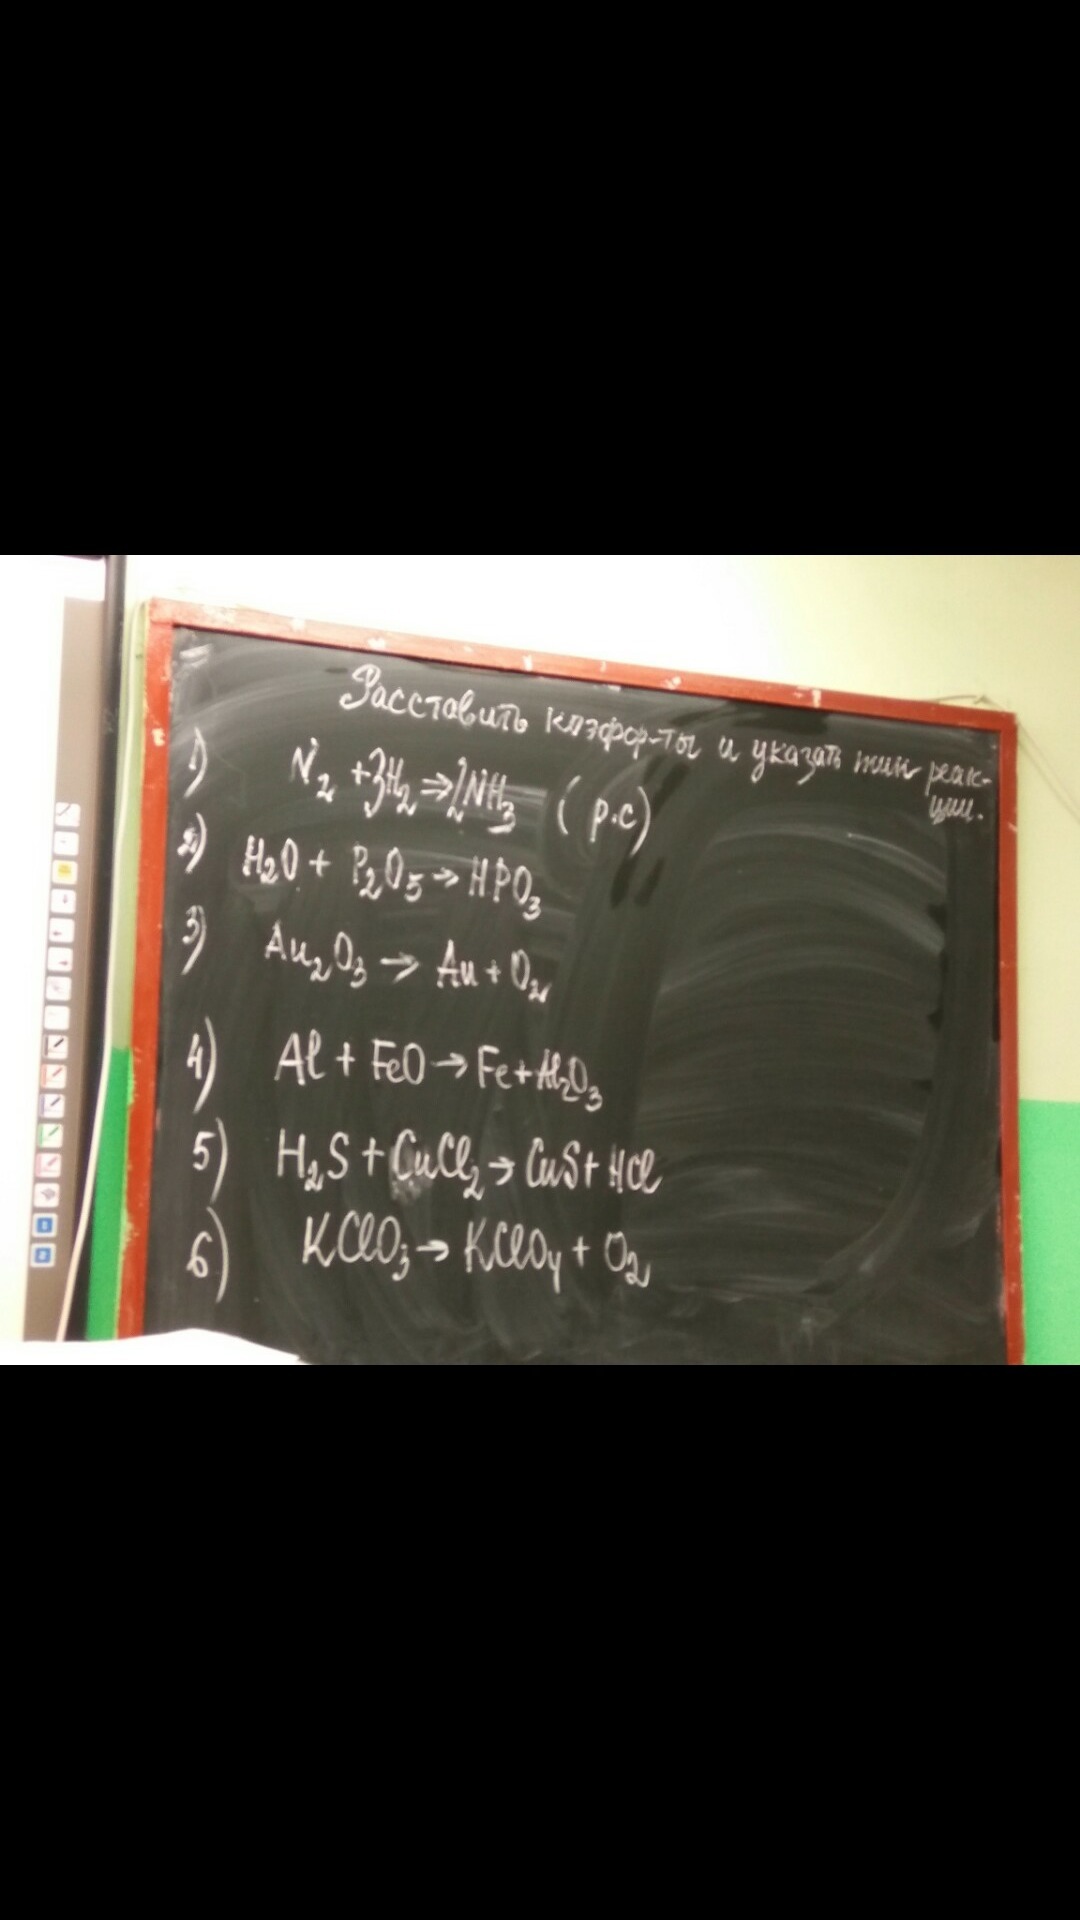 Расставить коэффор-ты и указать тип реак-
ции.
1) N₂ + 3H₂ → 2NH₃ (р.с)
2) H₂O + P₂O₅ → HPO₃
3) Au₂O₃ → Au + O₂
4) Al + FeO → Fe + Al₂O₃
5) H₂S + CuCl₂ → CuS + HCl
6) KClO₃ → KClO₄ + O₂